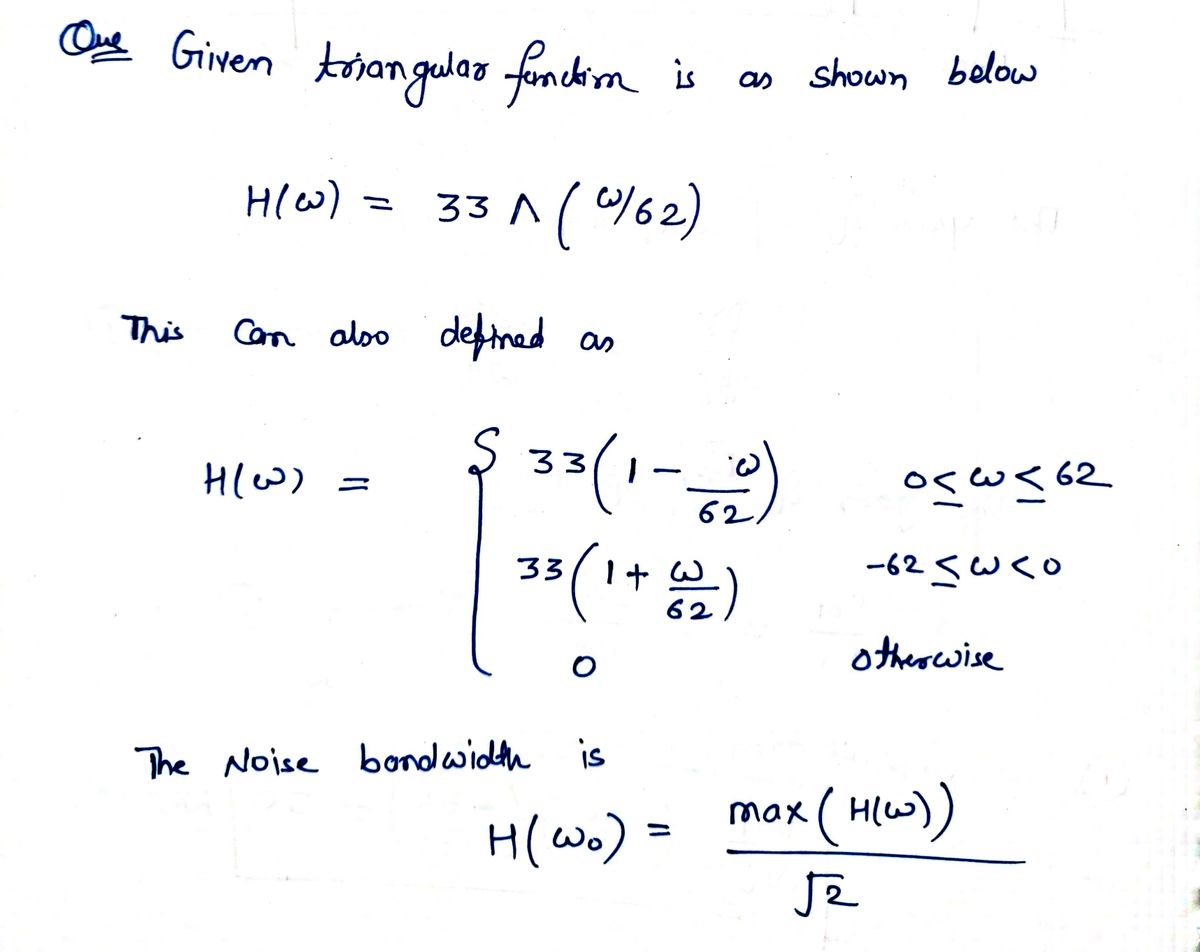 Que Given triangular function is as shown below
H(ω) = 33 Λ (ω/62)
This can also defined as
H(ω) = { 33(1 - ω/62) 0 ≤ ω ≤ 62
33(1 + ω/62) -62 ≤ ω < 0
0 otherwise
The Noise bandwidth is
H(ω₀) = max(H(ω))/√2